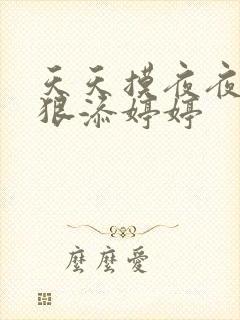 天天摸夜夜
狠添婷婷
麼麼愛